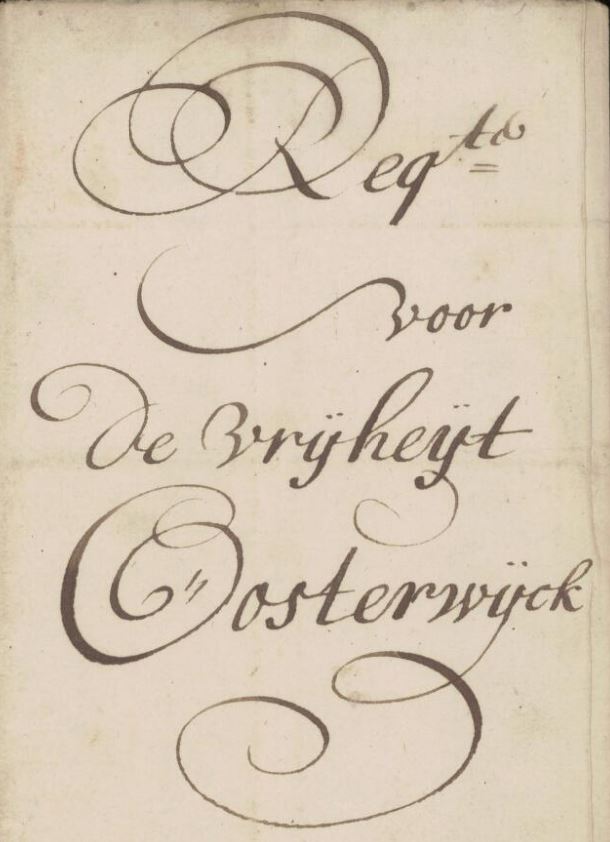 Reqte
voor
de vrÿheÿt
Oosterwÿck